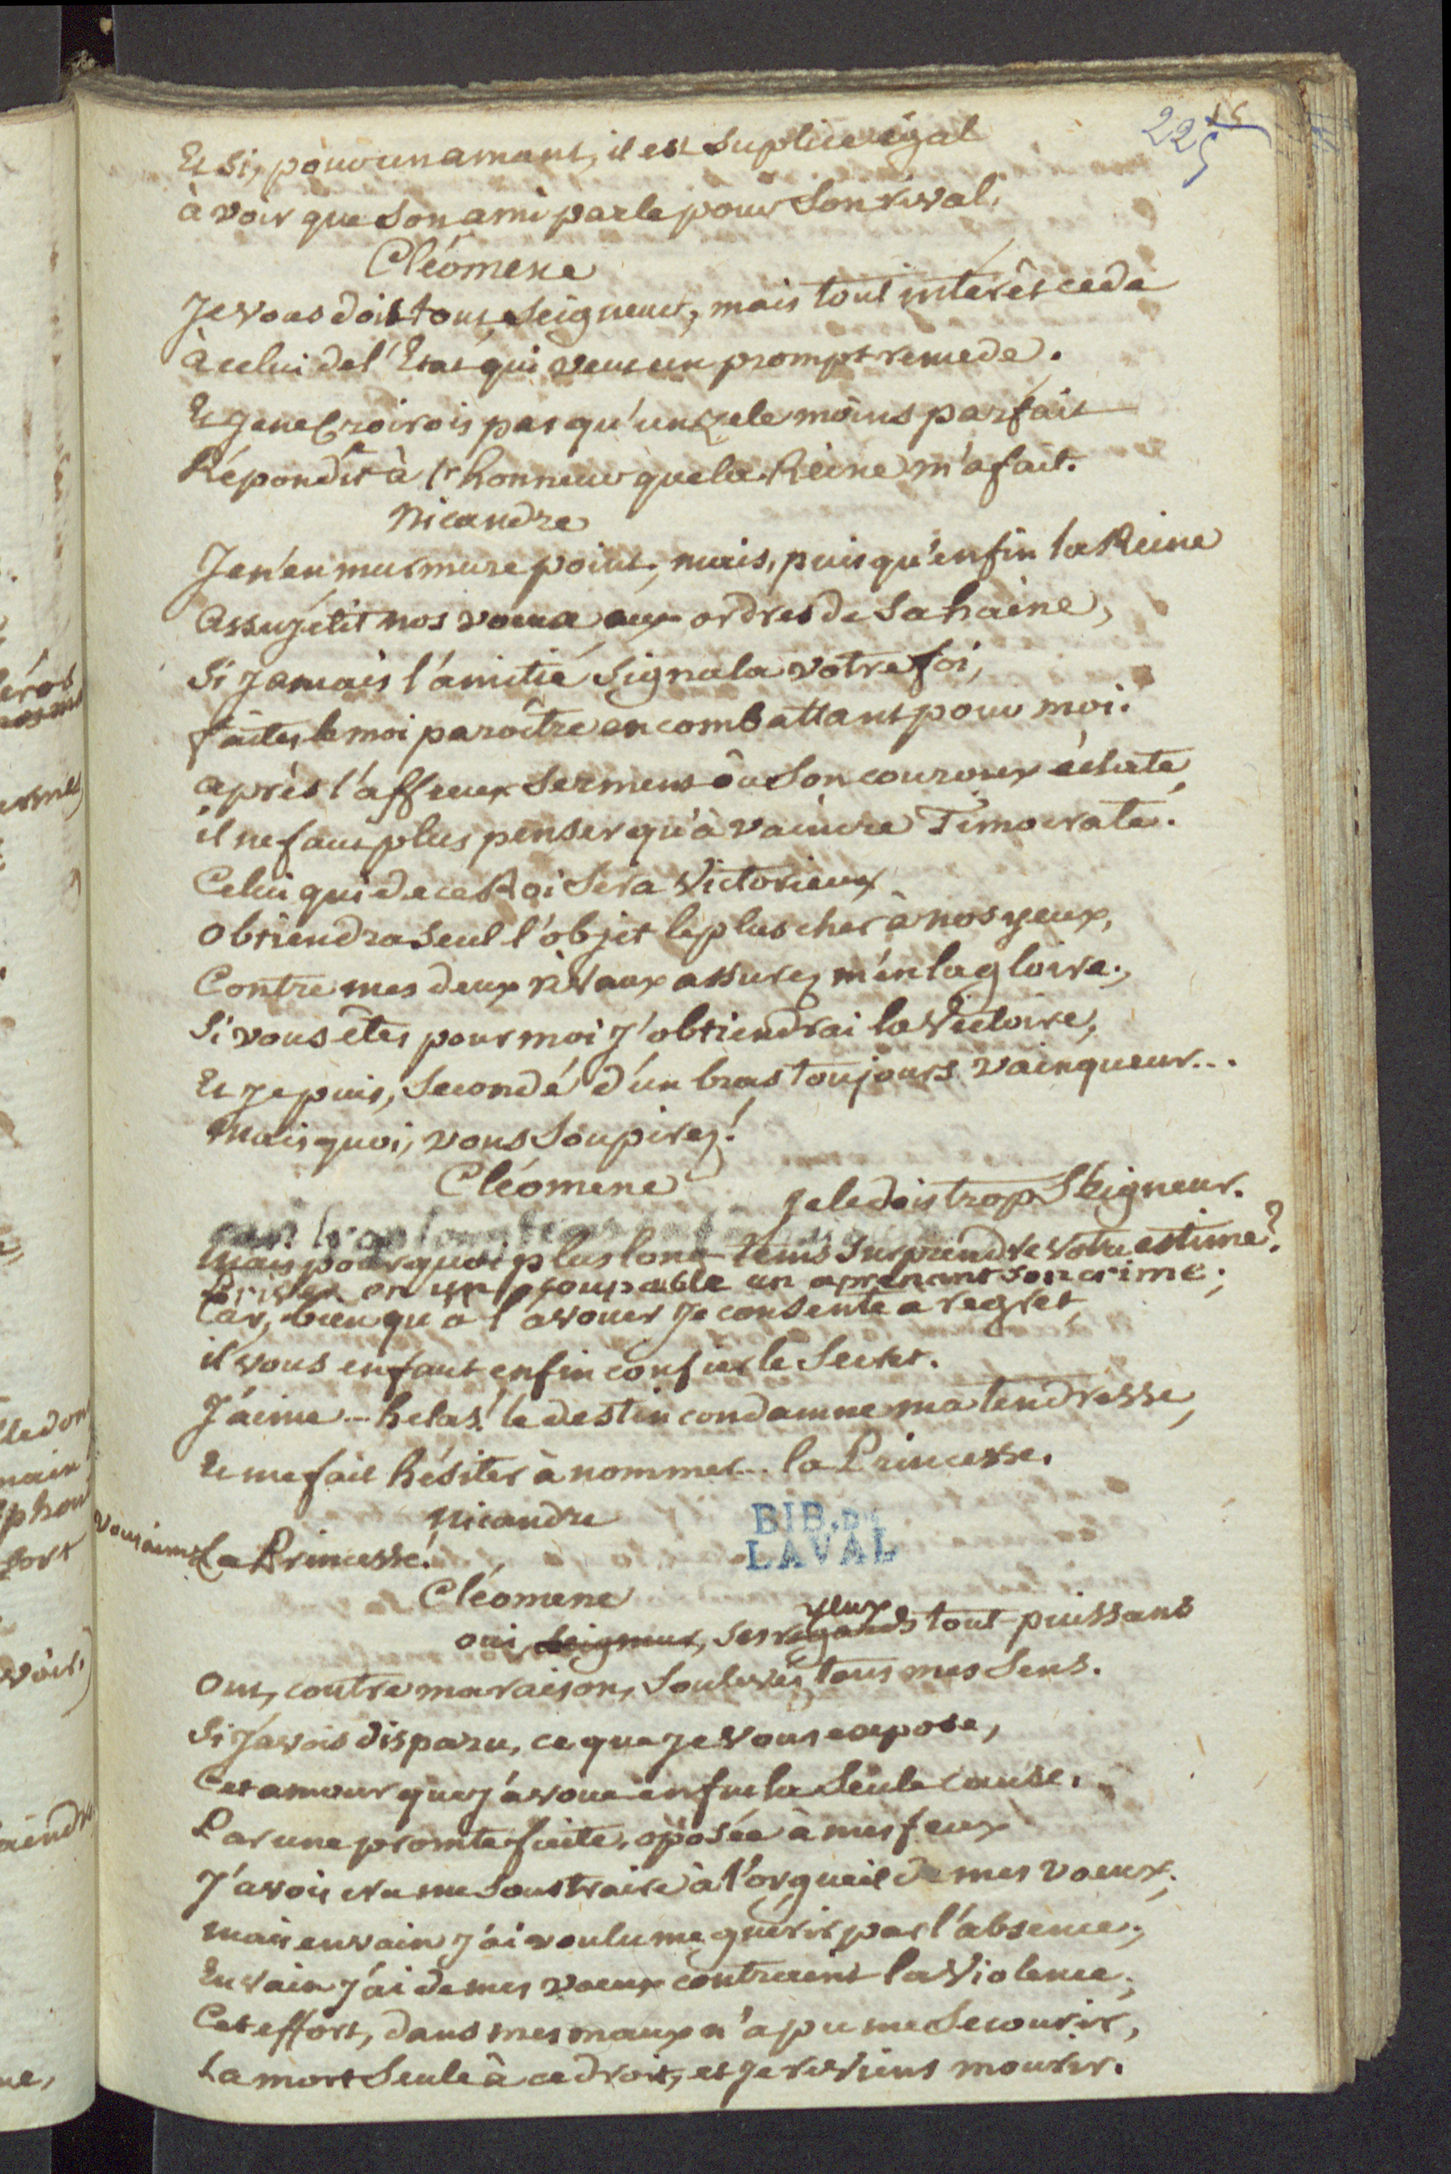 225
15
Et si, pour un amant, il est suplice égal
à voir que son ami parle pour son rival.
Cléomene
Je vous dois tout, Seigneur, mais tout intérêt cede
à celui de l'Etat qui veut un prompt remede.
Et je ne Croirois pas qu'un zele moins parfait
Répondît à l'honneur que la Reine m'a fait.
Nicandre
Je n'en murmure point, mais, puis qu'enfin la Reine
Assujétit nos voeux aux ordres de sa haine,
Si jamais l'amitié signala votre foi,
faites le moi paroître en combattant pour moi.
après l'affreux serment où son couroux éclate,
il ne faut plus penser qu'à vaincre Timocrate.
Celui qui de ce Roi sera Victorieux
obtiendra seul l'objet le plus cher à nos yeux,
Contre mes deux rivaux assurez m'en la gloire,
Si vous êtes pour moi j'obtiendrai la Victoire,
Et je puis, secondé d'un bras toujours vainqueur...
Mais quoi, vous soupirez!
Cléomene
Je le dois trop Seigneur.
Mais pourquoi plus long tems surprendre votre estime?
en un coupable en aprenant son crime;
Car, bien qu'à l'avouer je consente a regret,
il vous en faut enfin confier le secret.
J'aime... helas! le destin condamne ma tendresse,
Et me fait hésiter à nommer... la Princesse.
Nicandre
vous aimez La Princesse!
BIB. DE
LAVAL
Cléomene
yeux
oui, Seigneur, ses regards tout-puissans
Ont, contre ma raison, soulevé tous mes sens.
Si j'avois disparu, ce que je vous expose,
Cet amour que j'avoue en fut la seule cause.
Par une promte fuite, oposée à mes feux
J'avois cru me soustraire à l'orgueil de mes voeux;
mais en vain j'ai voulu me guérir par l'absence,
En vain j'ai de mes voeux contraint la Violence,
Cet effort, dans mes maux n'a pu me secourir,
La mort seule à ce droit, et je reviens mourir.